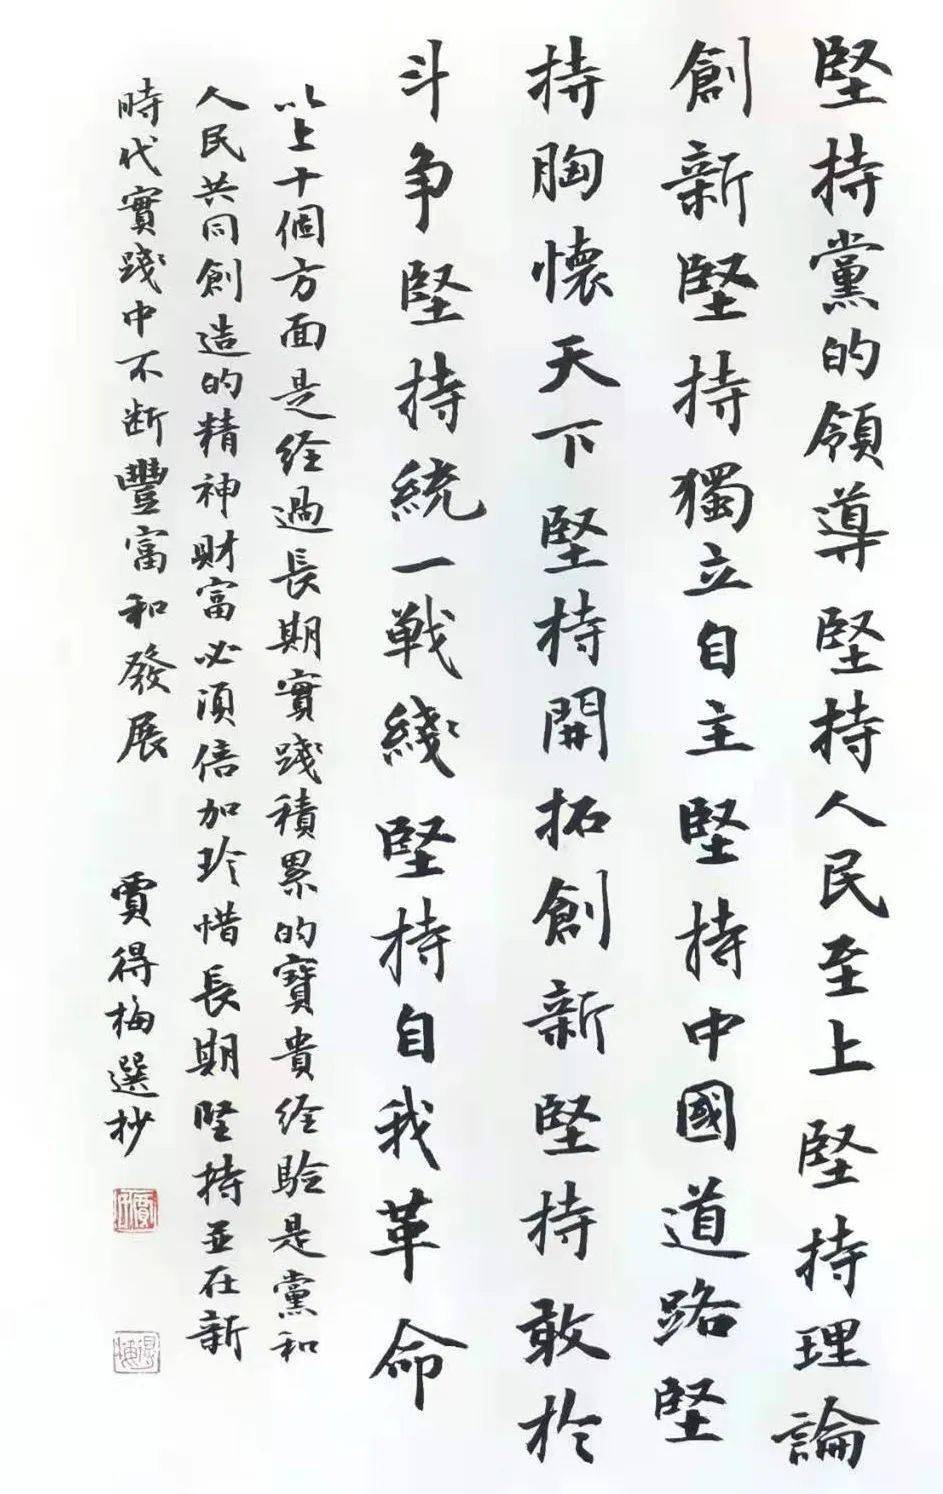 堅持黨的領導堅持人民至上堅持理論
創新堅持獨立自主堅持中國道路堅
持胸懷天下堅持開拓創新堅持敢於
斗争堅持統一戰綫堅持自我革命
以上十個方面是经過長期實踐積累的寶貴经驗是黨和
人民共同創造的精神財富必須倍加珍惜長期堅持並在新
時代實踐中不断豐富和發展
賈得梅選抄